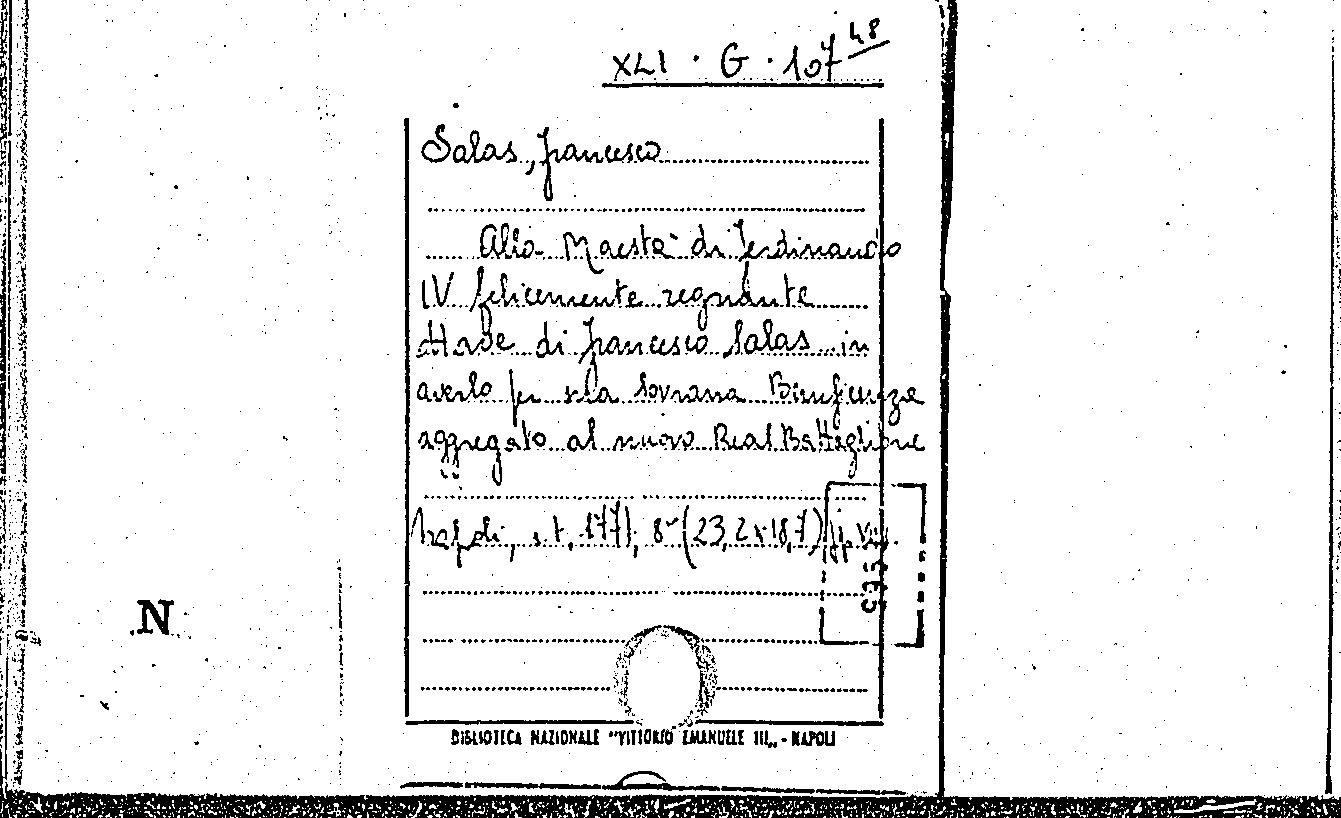 XLI. G. 107 48
Salas, Francesco
Alla Maestà di Ferdinando
IV felicemente regnante
di Francesco Salas in
averlo per sua Sovrana Beneficenza
aggregato al nuovo Real Battaglione
Napoli, s.t. 1771, 8° (23,2x18,7) pp. VIII.
N
BIBLIOTECA NAZIONALE "VITTORIO EMANUELE III„ - NAPOLI